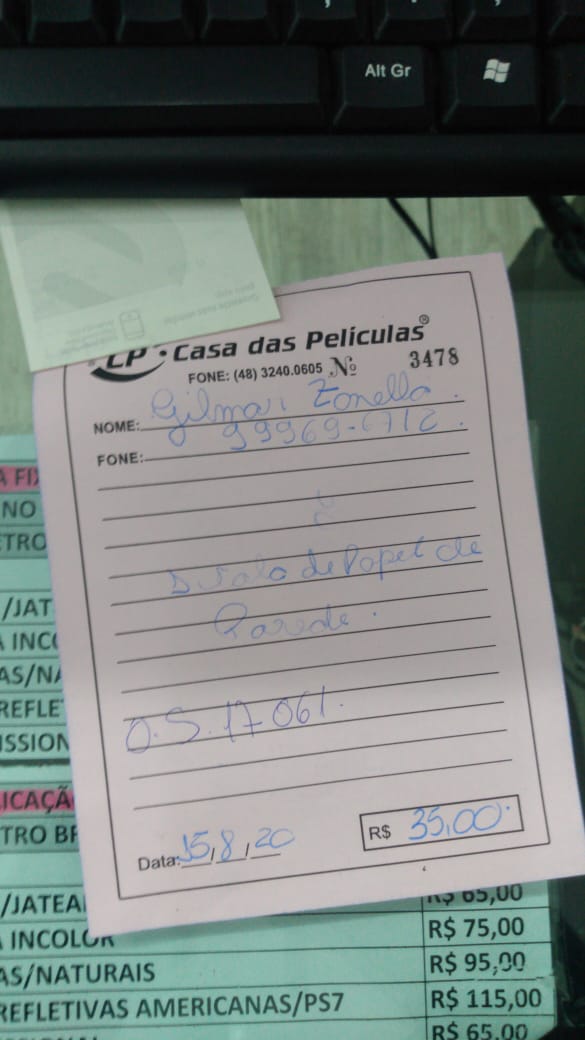 Alt Gr
CP • Casa das Películas®
FONE: (48) 3240.0605 Nº 3478
NOME: Gilmar Zonella.
FONE: 99969-6712.
de Papel de
Parede.
O.S. 17 061.
Data: 15,8,20
R$ 35,00
A FIX
NO
ETRO
/JAT
A INCO
AS/NA
REFLET
ISSION
LICAÇÃ
TRO BR
/JATEA
R$ 65,00
A INCOLOR
R$ 75,00
AS/NATURAIS
R$ 95,00
REFLETIVAS AMERICANAS/PS7
R$ 115,00
R$ 65,00